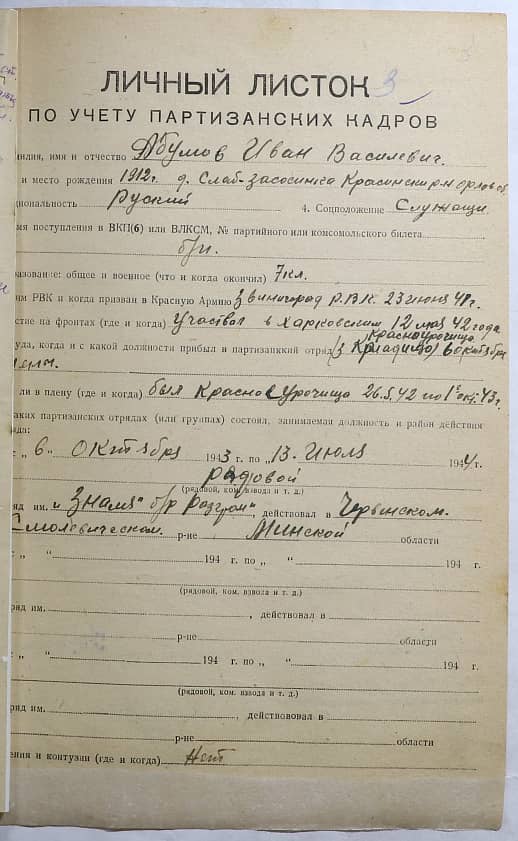 ЛИЧНЫЙ ЛИСТОК 3
ПО УЧЕТУ ПАРТИЗАНСКИХ КАДРОВ
милия, имя и отчество Абумов Иван Василевич.
и место рождения 1912г д. Слаб-Засосинка Красински рн орлов об
циональность Руский 4. Соцположение Служащи
мя поступления в ВКП(б) или ВЛКСМ, № партийного или комсомольского билета
б/п.
разование: общее и военное (что и когда окончил) 7 кл.
им РВК и когда призван в Красную Армию Звиниград Р.В.К. 23 июня 41г.
стие на фронтах (где и когда) Участвовал в Харковским 12 мая 42 года
Красноурочища
уда, когда и с какой должности прибыл в партизанский отряд (з 6 октября
ли в плену (где и когда) был Красное Урочища 26.5.42 по 1 окт. 43 г.
аких партизанских отрядах (или группах) состоял, занимаемая должность и район действия
яда:
с „ 6 " октября 1943 г. по „ 13 " Июля 1944 г.
рядовой
(рядовой, ком. взвода и т. д.)
ряд им. „Знамя" б/р Разгром", действовал в Червинском.
Смолевическом. р-не Минской области
с „ " 194 г. по „ " 194 г.
(рядовой, ком. взвода и т. д.)
ряд им. , действовал в
р-не области
с „ " 194 г. по „ " 194 г.
(рядовой, ком. взвода и т. д.)
ряд им. , действововал в
р-не области
ения и контузии (где и когда) Нет